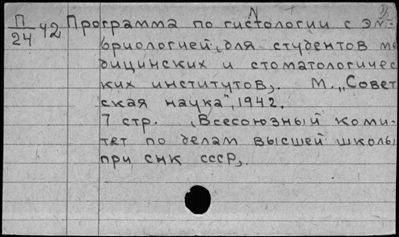 N
П/24 42 Программа по гистологии с эм-
бриологией, для студентов ме
дицинских и стоматологичес
ких институтов,. М. „Совет
ская наука", 1942.
7 стр. (Всесоюзный коми-
тет по делам высшей школы
при СНК СССР),.